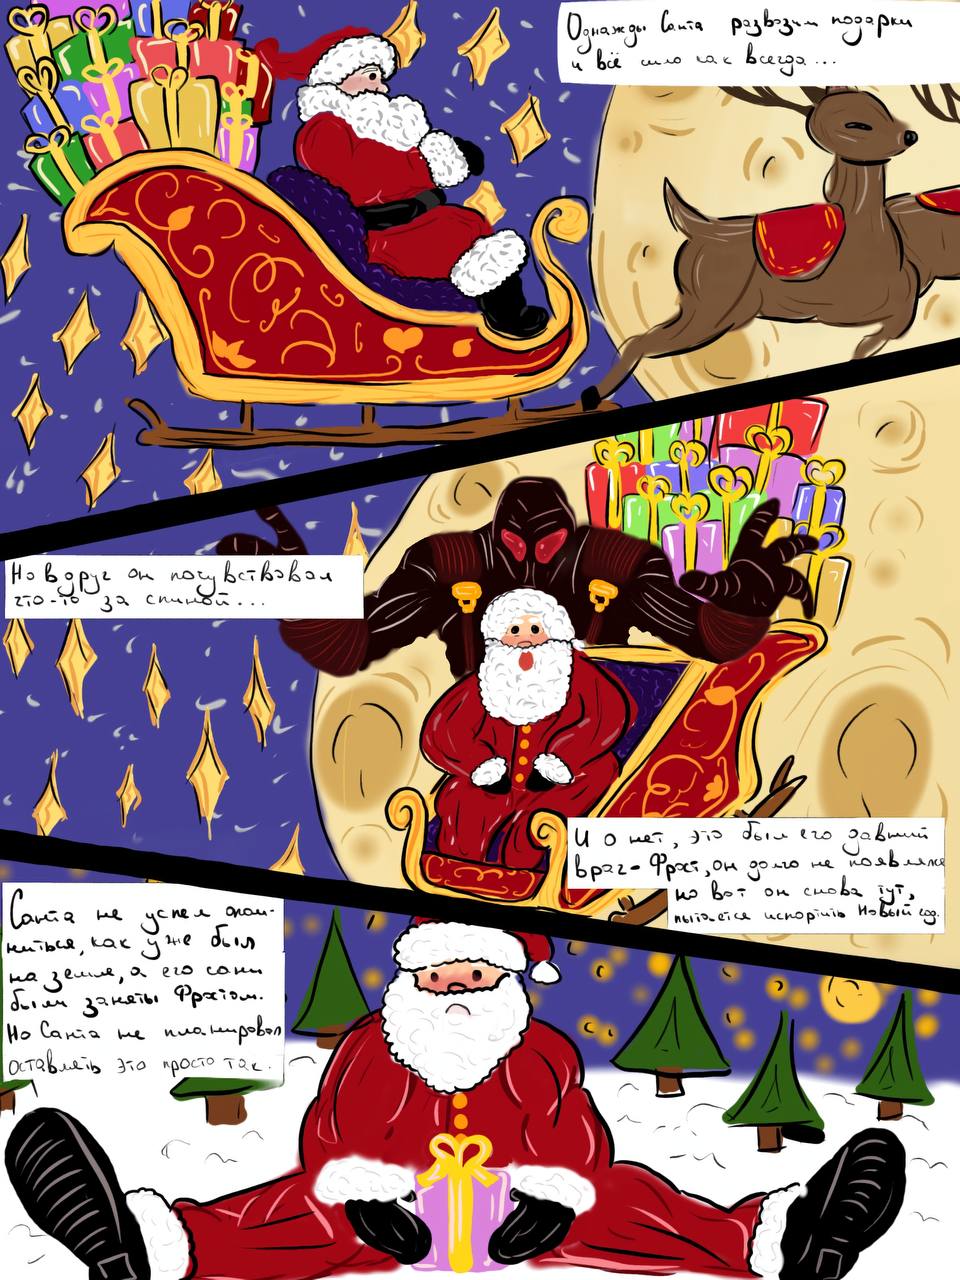 Однажды Санта развозил подарки
и всё шло как всегда...
Но вдруг он почувствовал
что-то за спиной...
И о нет, это был его давний
враг- Фрэт, он долго не появлялся
но вот он снова тут,
пытается испортить Новый год.
Санта не успел опом-
ниться, как уже был
на земле, а его сани
были заняты Фрэтом.
Но Санта не планировал
оставлять это просто так.